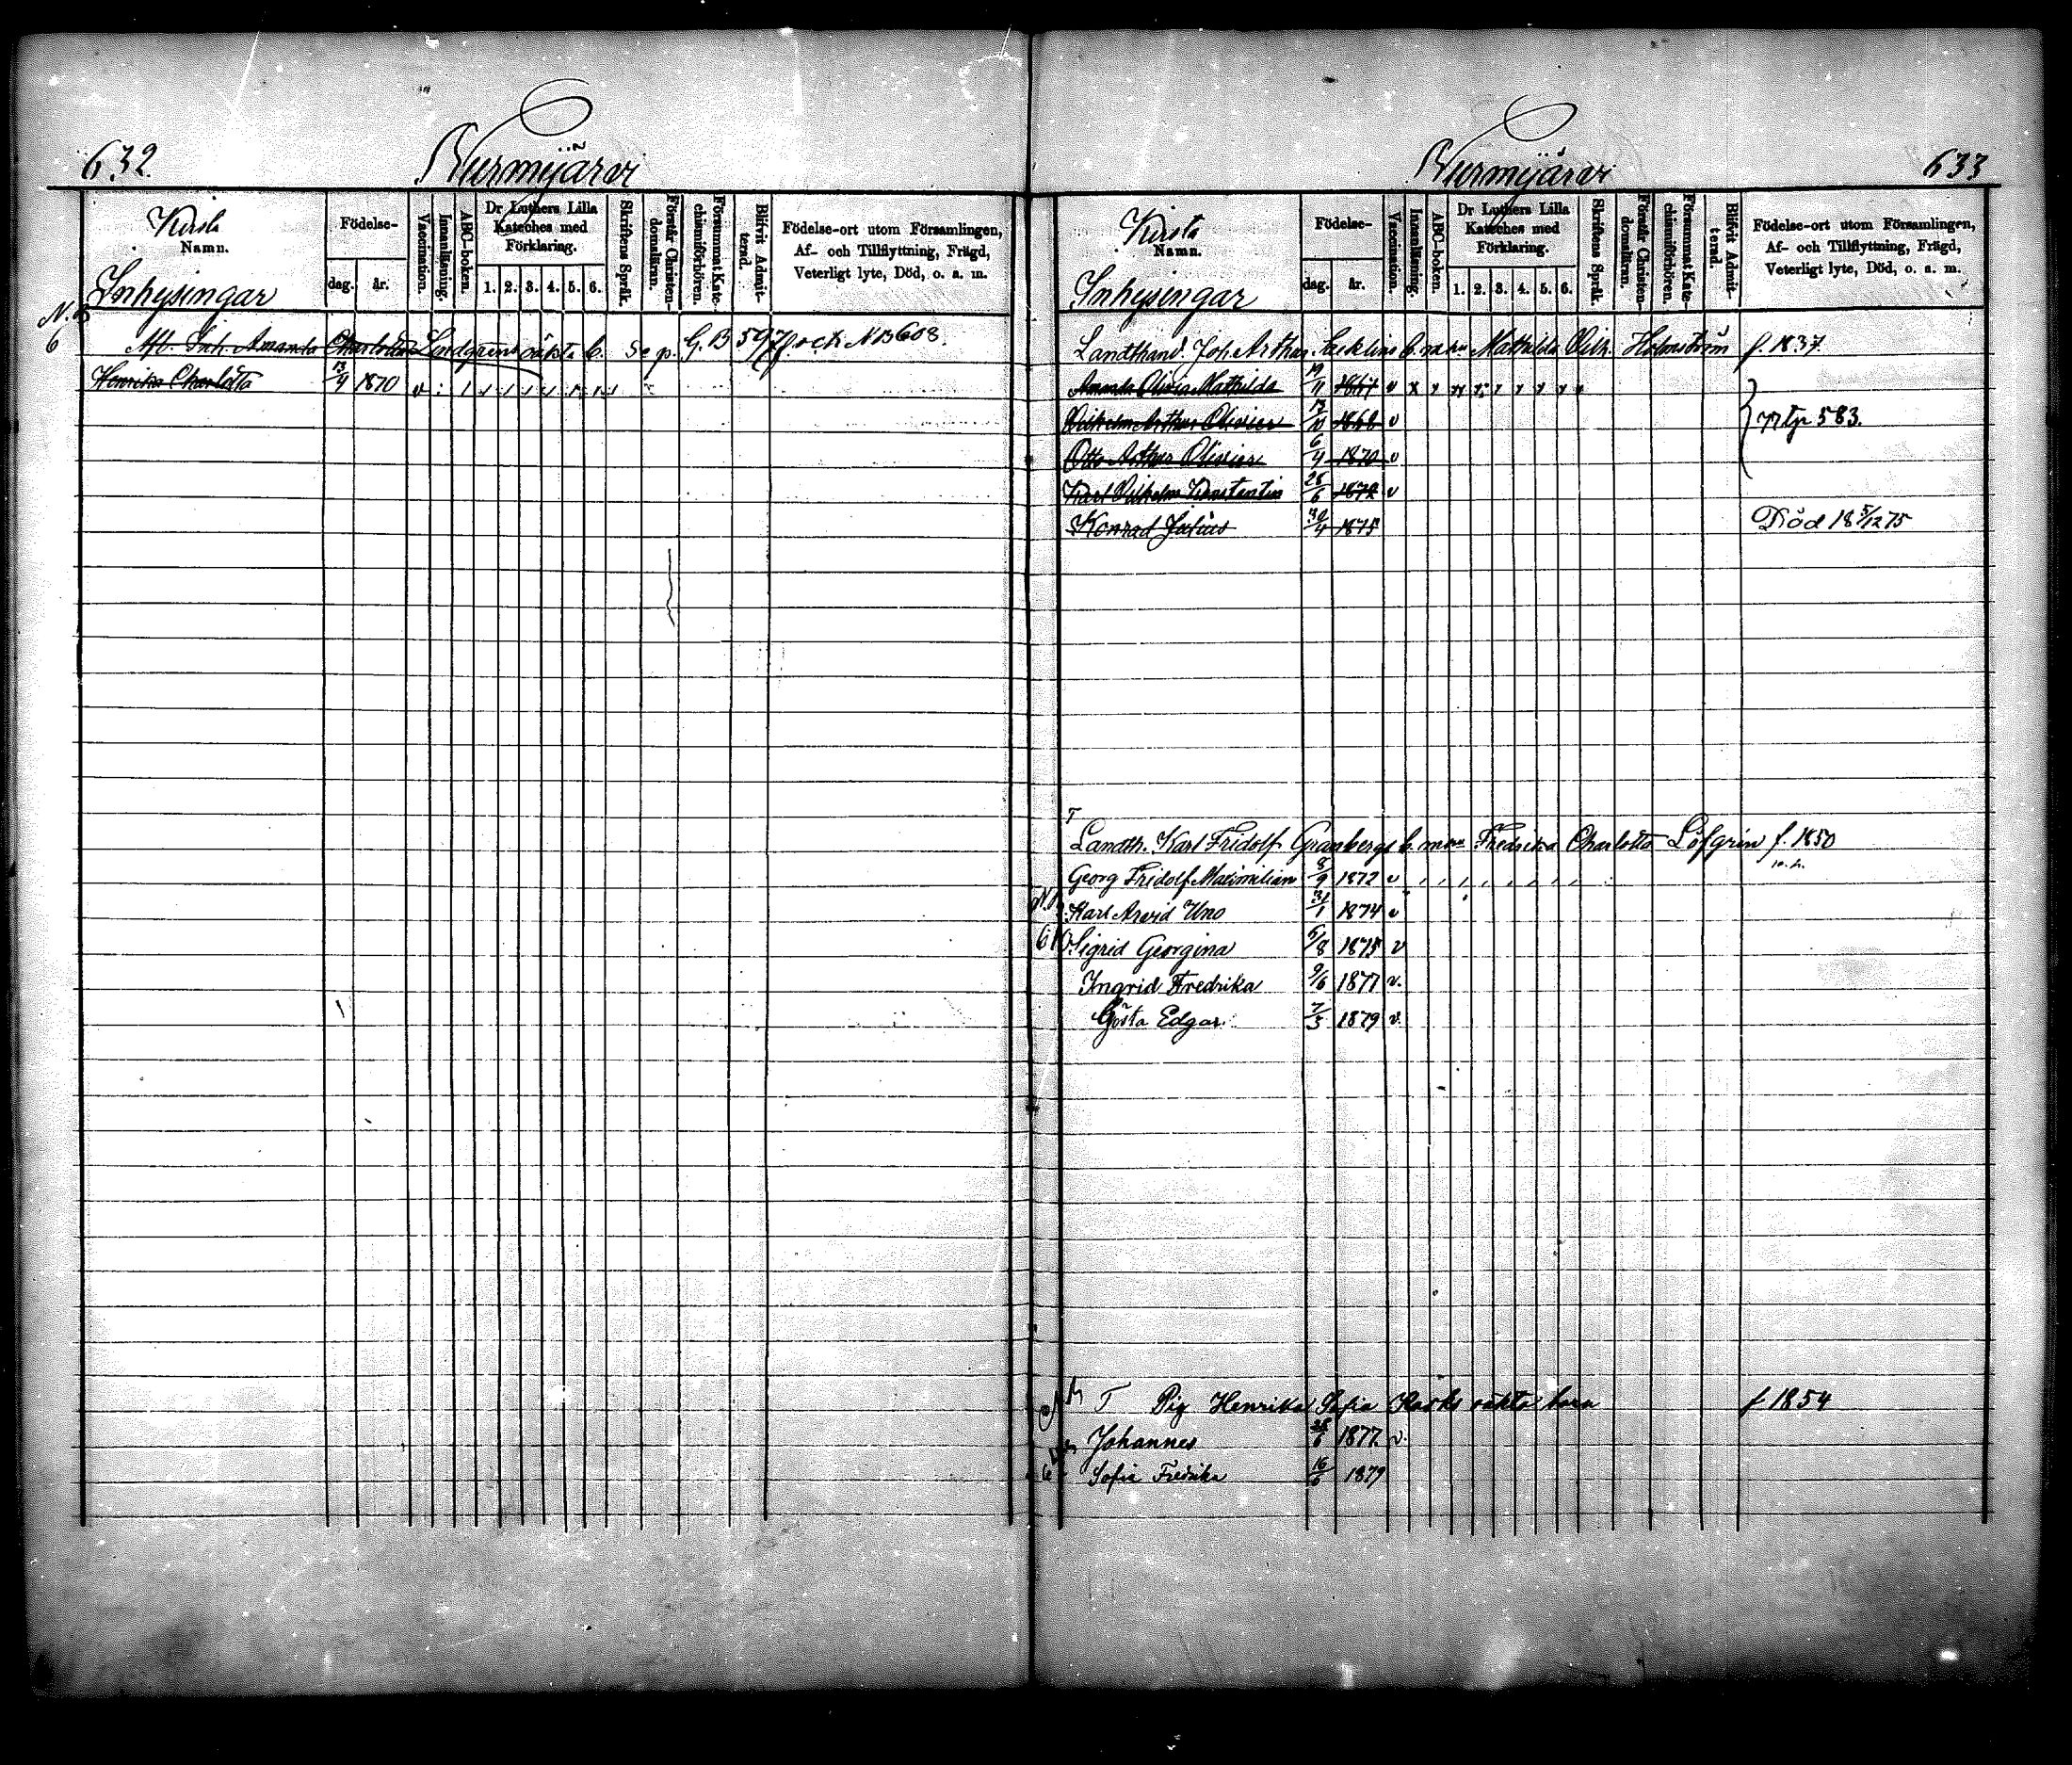 632.
Nurmijärvi
Kirsta
Namn.
Inhysingar
Födelse-
dag.
år.
Vaccination.
Innanläsning.
ABC-boken.
Dr Luthers Lilla
Kateches med
Förklaring.
1. 2. 3. 4. 5. 6.
Skriftens Språk.
Förstår Christen-
domsläran.
Försummat Kate-
chismiförhören.
Blifvit Admit-
terad.
Födelse-ort utom Församlingen,
Af- och Tillflyttning, Frägd,
Veterligt lyte, Död, o. a. m.
Inh. Amanda Charlotta Lindgrens oäkta b. Se p. G. B 597 och NB 608.
6
Henrika Charlotta 13/4 1870 v
Nurmijärvi
633
Kirsta
Namn.
Inhysingar
Födelse-
dag.
år.
Vaccination.
Innanläsning.
ABC-boken.
Dr Luthers Lilla
Kateches med
Förklaring.
1. 2. 3. 4. 5. 6.
Skriftens Språk.
Förstår Christen-
domsläran.
Försummat Kate-
chismiförhören.
Blifvit Admit-
terad.
Födelse-ort utom Församlingen,
Af- och Tillflyttning, Frägd,
Veterligt lyte, Död, o. a. m.
Landthand. Joh Arthur b. Mathilda Vilh. Holmström f. 1837.
Amanda Olivia Mathilda 19/11 v
Vilhelm Arthur Olivier 1868 v
77 583.
Otto Arthur Olivier 6/4 1870 v
Karl Vilhelm Konstantin 28/6 1872 v
Konrad Julius 30/4 1875 Död 18 5/12 75
T
Landth. Karl Fridolf Granbergs b. Fredrika Charlotta Löfgrén f. 1850
Georg Fridolf Maximilian 8/9 1872 v
Karl Arvid Uno 31/1 1874 v
610
Sigrid Georgina 5/8 1875 v
Ingrid Fredrika 9/6 1877 v.
Gösta Edgar. 7/3 1879 v.
T Pig Henrika Sofia oäkta barn f 1854
Johannes 1877. v.
Sofia Fredrika 16/6 1879